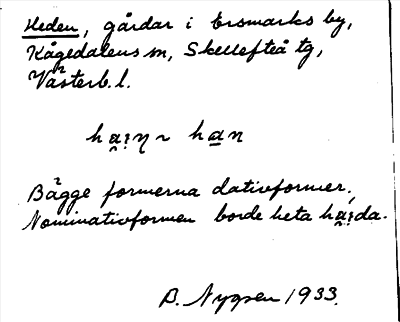 Heden, gårdar i Ersmarks by,
Kågedalens sn, Skellefteå tg,
Västerb. l.
ha̯i̯n ~ han
Bägge formerna dativformer,
Nominativformen borde heta ha̯i̯da.
B. Nygren 1933.